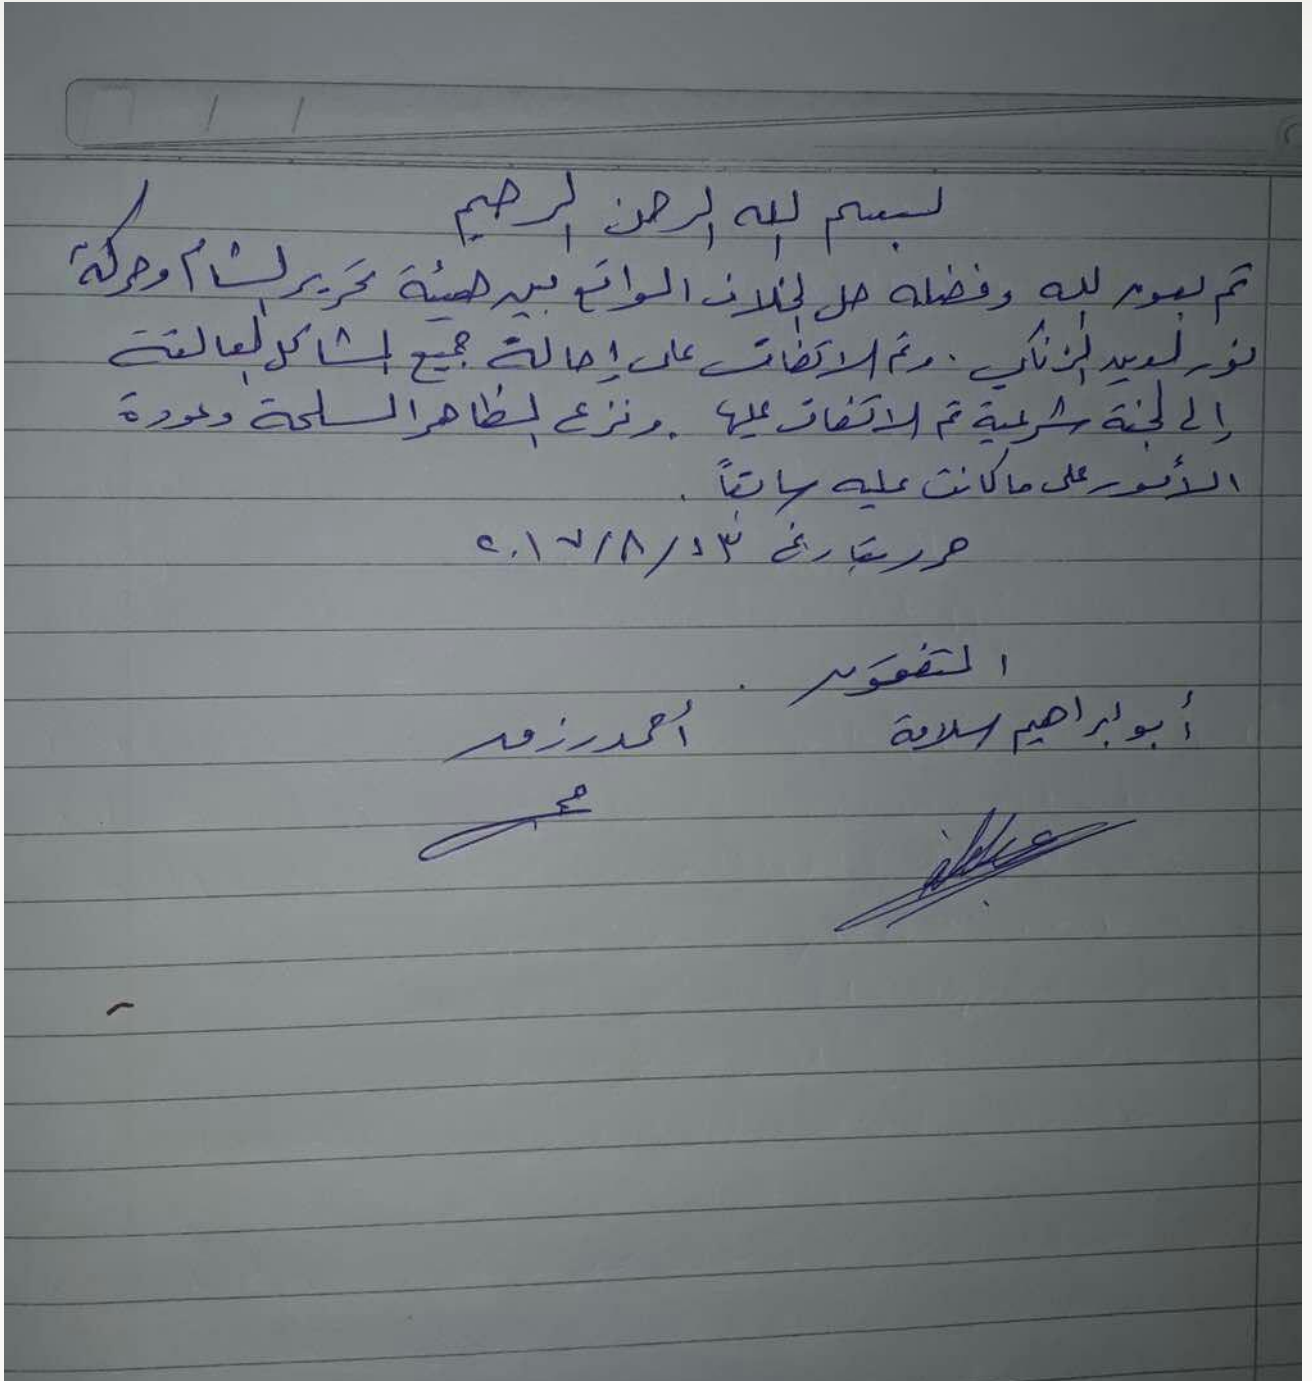 بسم الله الرحمن الرحيم
تم بعون لله وفضله حل الخلاف الواقع بين هيئة تحرير الشام وحركة
نور الدين الزنكي . وتم الاتفاق على إحالة جميع المشاكل العالقة
إلى لجنة شرعية تم الاتفاق عليها . ونزع المظاهر المسلحة وعودة
الأمور على ما كانت عليه سابقاً .
حرر بتاريخ ٢٠١٧/٨/
المتفقون .
أبو ابراهيم سلامة أحمد رزق